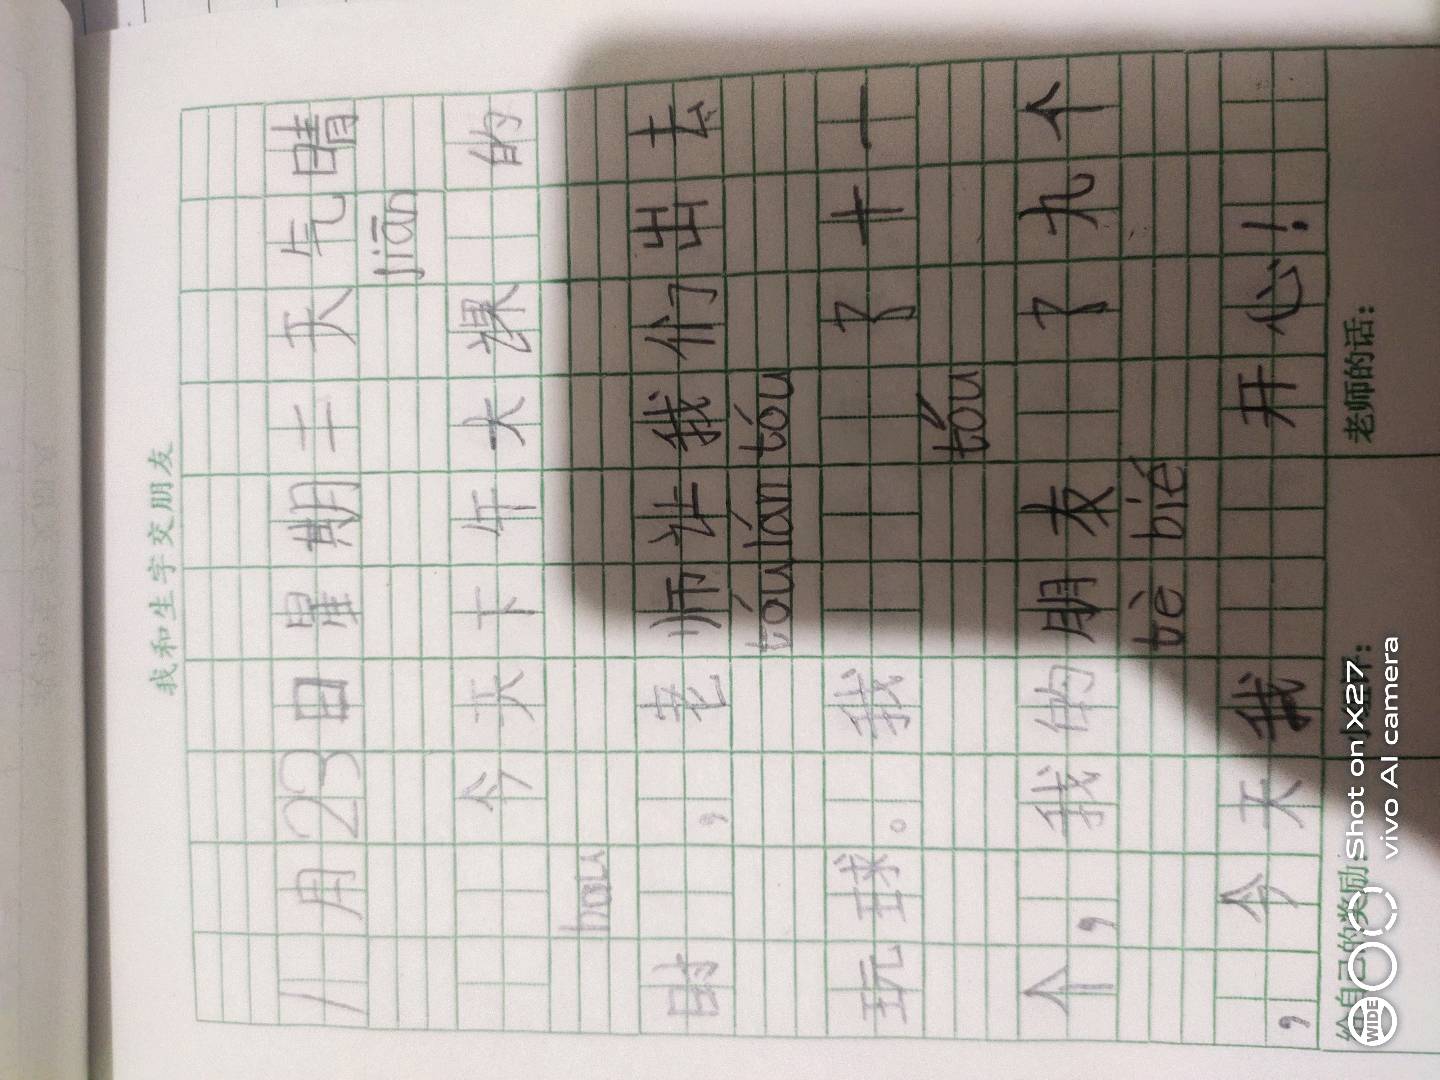 我和生字交朋友
八月23日星期二天气晴
jiān
今天下午大课 的
hou
时 ，老师让我们出去
tóulán tóu
玩球。我 了十一
tóu
个，我的朋友 了九个
tè bié
，今天我 开心！
给自己的奖励：
老师的话：
Shot on X27
vivo AI camera
WIDE